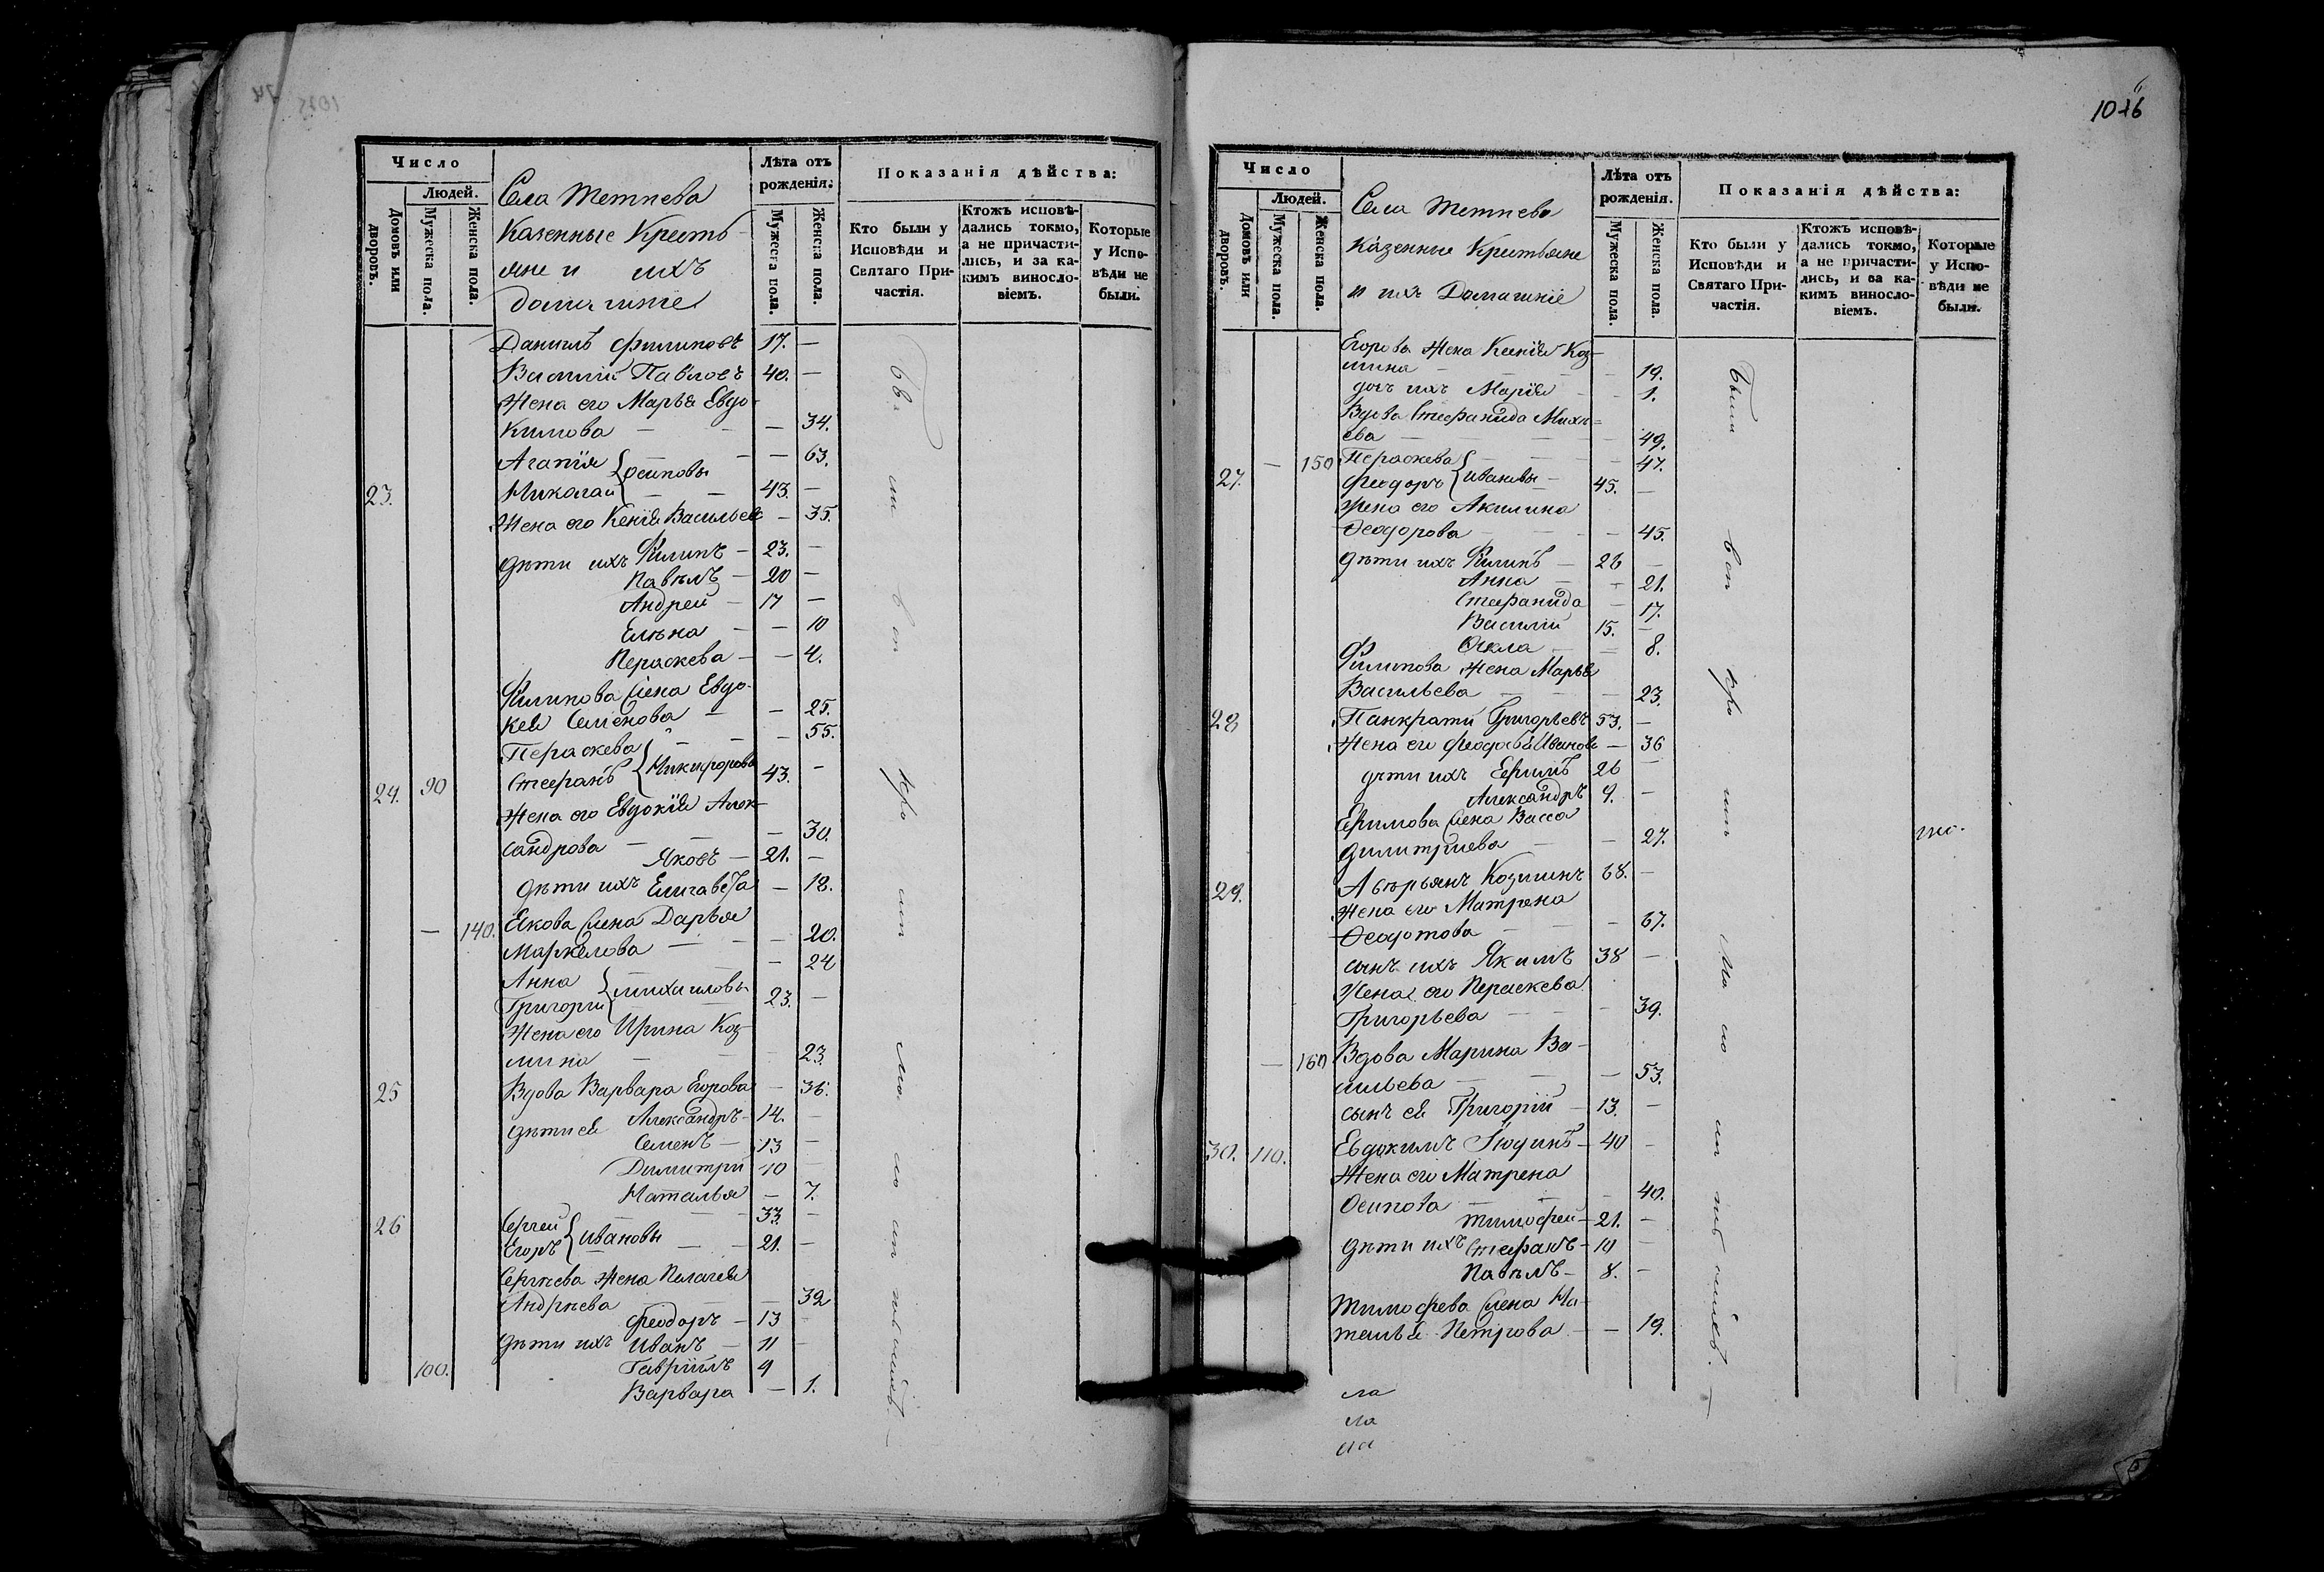 Число
Людей.
Домовъ или дворовъ.
Мужеска пола.
Женска пола.
Села Тетнева
Казенные Кресть-
яне и ихъ
домашніе
Лѣта отъ рожденія:
Мужеска пола.
Женска пола.
Показанія дѣйства:
Кто были у Исповѣди и Святаго Причастія.
Ктожъ исповѣдались токмо, а не причастились, и за какимъ винословіемъ.
Которые у Исповѣди не были.
Даніилъ Филиповъ 17. —
Василій Павловъ 40. —
Жена его Марья Евдо-
кимова — 34.
Агапія — 63.
23. Николай } Осиповы 43. —
Жена его Ксенія Васильева — 35.
дѣти ихъ Филипъ — 23. —
Павелъ — 20 —
Андрей — 17 —
Елена — — 10
Параскева — — 4.
Филипова жена Евдо-
кея Семенова — — 25.
Параскева — 55.
24. 90 Стефанъ } Никифоровы 43. —
Жена его Евдокія Алек-
сандрова — — 30.
Яковъ — 21. —
дѣти ихъ Елизавета — 18.
— 140. Якова жена Дарья
Маркелова — — 20.
Анна — 24
Григорій } Михайловы 23. —
Жена его Ирина Коз-
мина — 23.
25 Вдова Варвара Егорова — 36.
дѣти ея Александръ — 14. —
Семенъ — 13 —
Димитрій 10 —
Наталья — 7.
26 Сергей — 33. —
Егоръ } Ивановы — 21. —
Сергѣева жена Пелагея
Андрѣева — 32
Феодоръ — 13 —
дѣти ихъ Иванъ — 11 —
100. Гавріилъ 9
Варвара — 1.
1016
Число
Людей.
Домовъ или дворовъ.
Мужеска пола.
Женска пола.
Села Тетнева
Казенные Крестьяне
и ихъ Домашніе
Лѣта отъ рожденія.
Мужеска пола.
Женска пола.
Показанія дѣйства:
Кто были у Исповѣди и Святаго Причастія.
Ктожъ исповѣдались токмо, а не причастились, и за какимъ винословіемъ.
Которые у Исповѣди не были.
Егорова жена Ксенія Коз-
мина — 19.
дочь ихъ Марія — 1.
Вдова Стефанида
— 49.
— 150 Параскева — 47.
27. Феодоръ } Ивановы — 45. —
жена его Акилина
Феодорова — 45.
дѣти ихъ Филипъ — 26 —
Анна — 21.
Стефанида — 17.
Василій 15. —
Фекла — 8.
Филипова жена Марья
Васильева — 23.
28 Панкратій Григорьевъ 53. —
Жена его Феодосья Иванова — 36
дѣти ихъ Ефимъ 26 —
Александръ 9. —
Ефимова жена Васса
Димитріева — 27.
29. Аверьянъ Козминъ 68. —
Жена его Матрена
Феодотова — 67.
сынъ ихъ Якимъ 38 —
Жена его Параскева
Григорьева — 39.
— 160 Вдова Марина Ва-
сильева — 53.
сынъ ея Григорій — 13. —
30. 110. Евдокимъ Юдинъ — 40 —
Жена его Матрена
Осипова — 40.
Тимофей — 21. —
дѣти ихъ Стефанъ — 10 —
Павелъ — 8. —
Тимофеева жена На-
талья Петрова — — 19.
ла
ла
ла